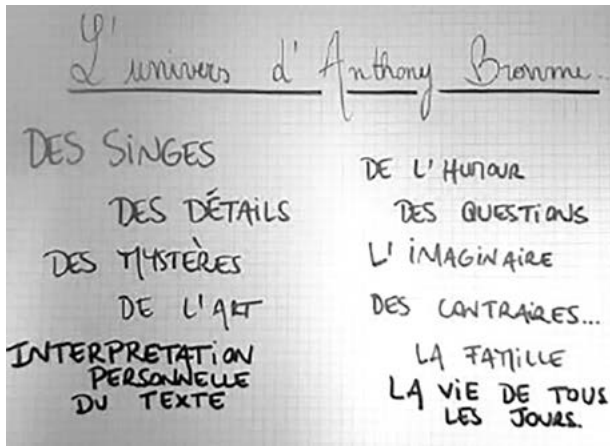 L'univers d'Anthony Browne.
DES SINGES
DES DÉTAILS
DES MYSTÈRES
DE L'ART
INTERPRETATION
PERSONNELLE
DU TEXTE
DE L'HUMOUR
DES QUESTIONS
L'IMAGINAIRE
DES CONTRAIRES...
LA FAMILLE
LA VIE DE TOUS
LES JOURS.